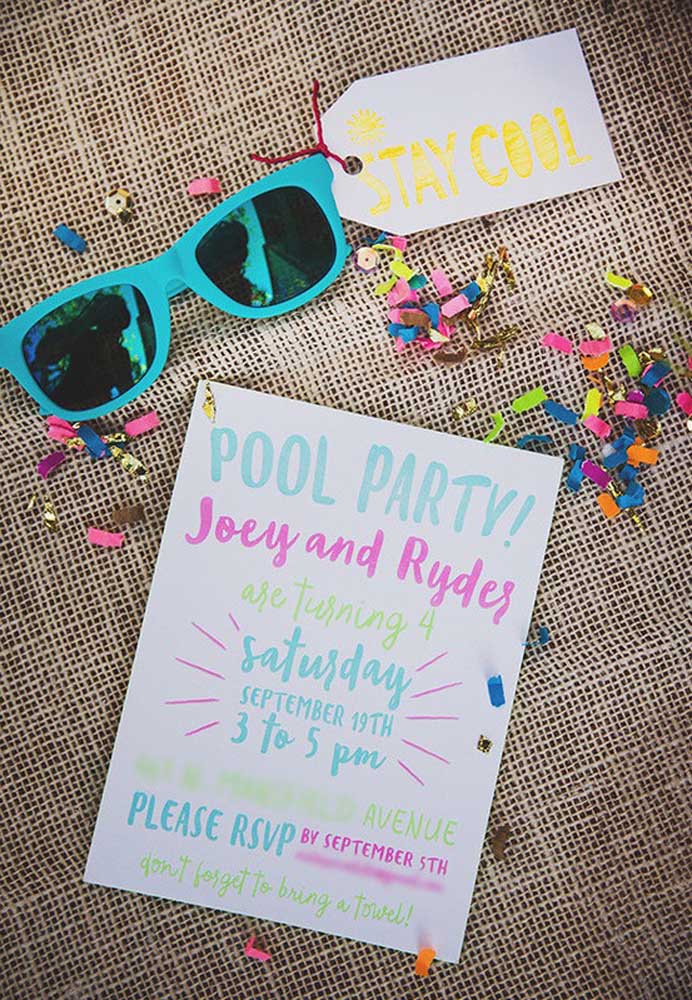 STAY COOL
POOL PARTY!
Joey and Ryder
are turning 4
saturday
SEPTEMBER 19TH
3 to 5 pm
AVENUE
PLEASE RSVP BY SEPTEMBER 5TH
don't forget to bring a towel!